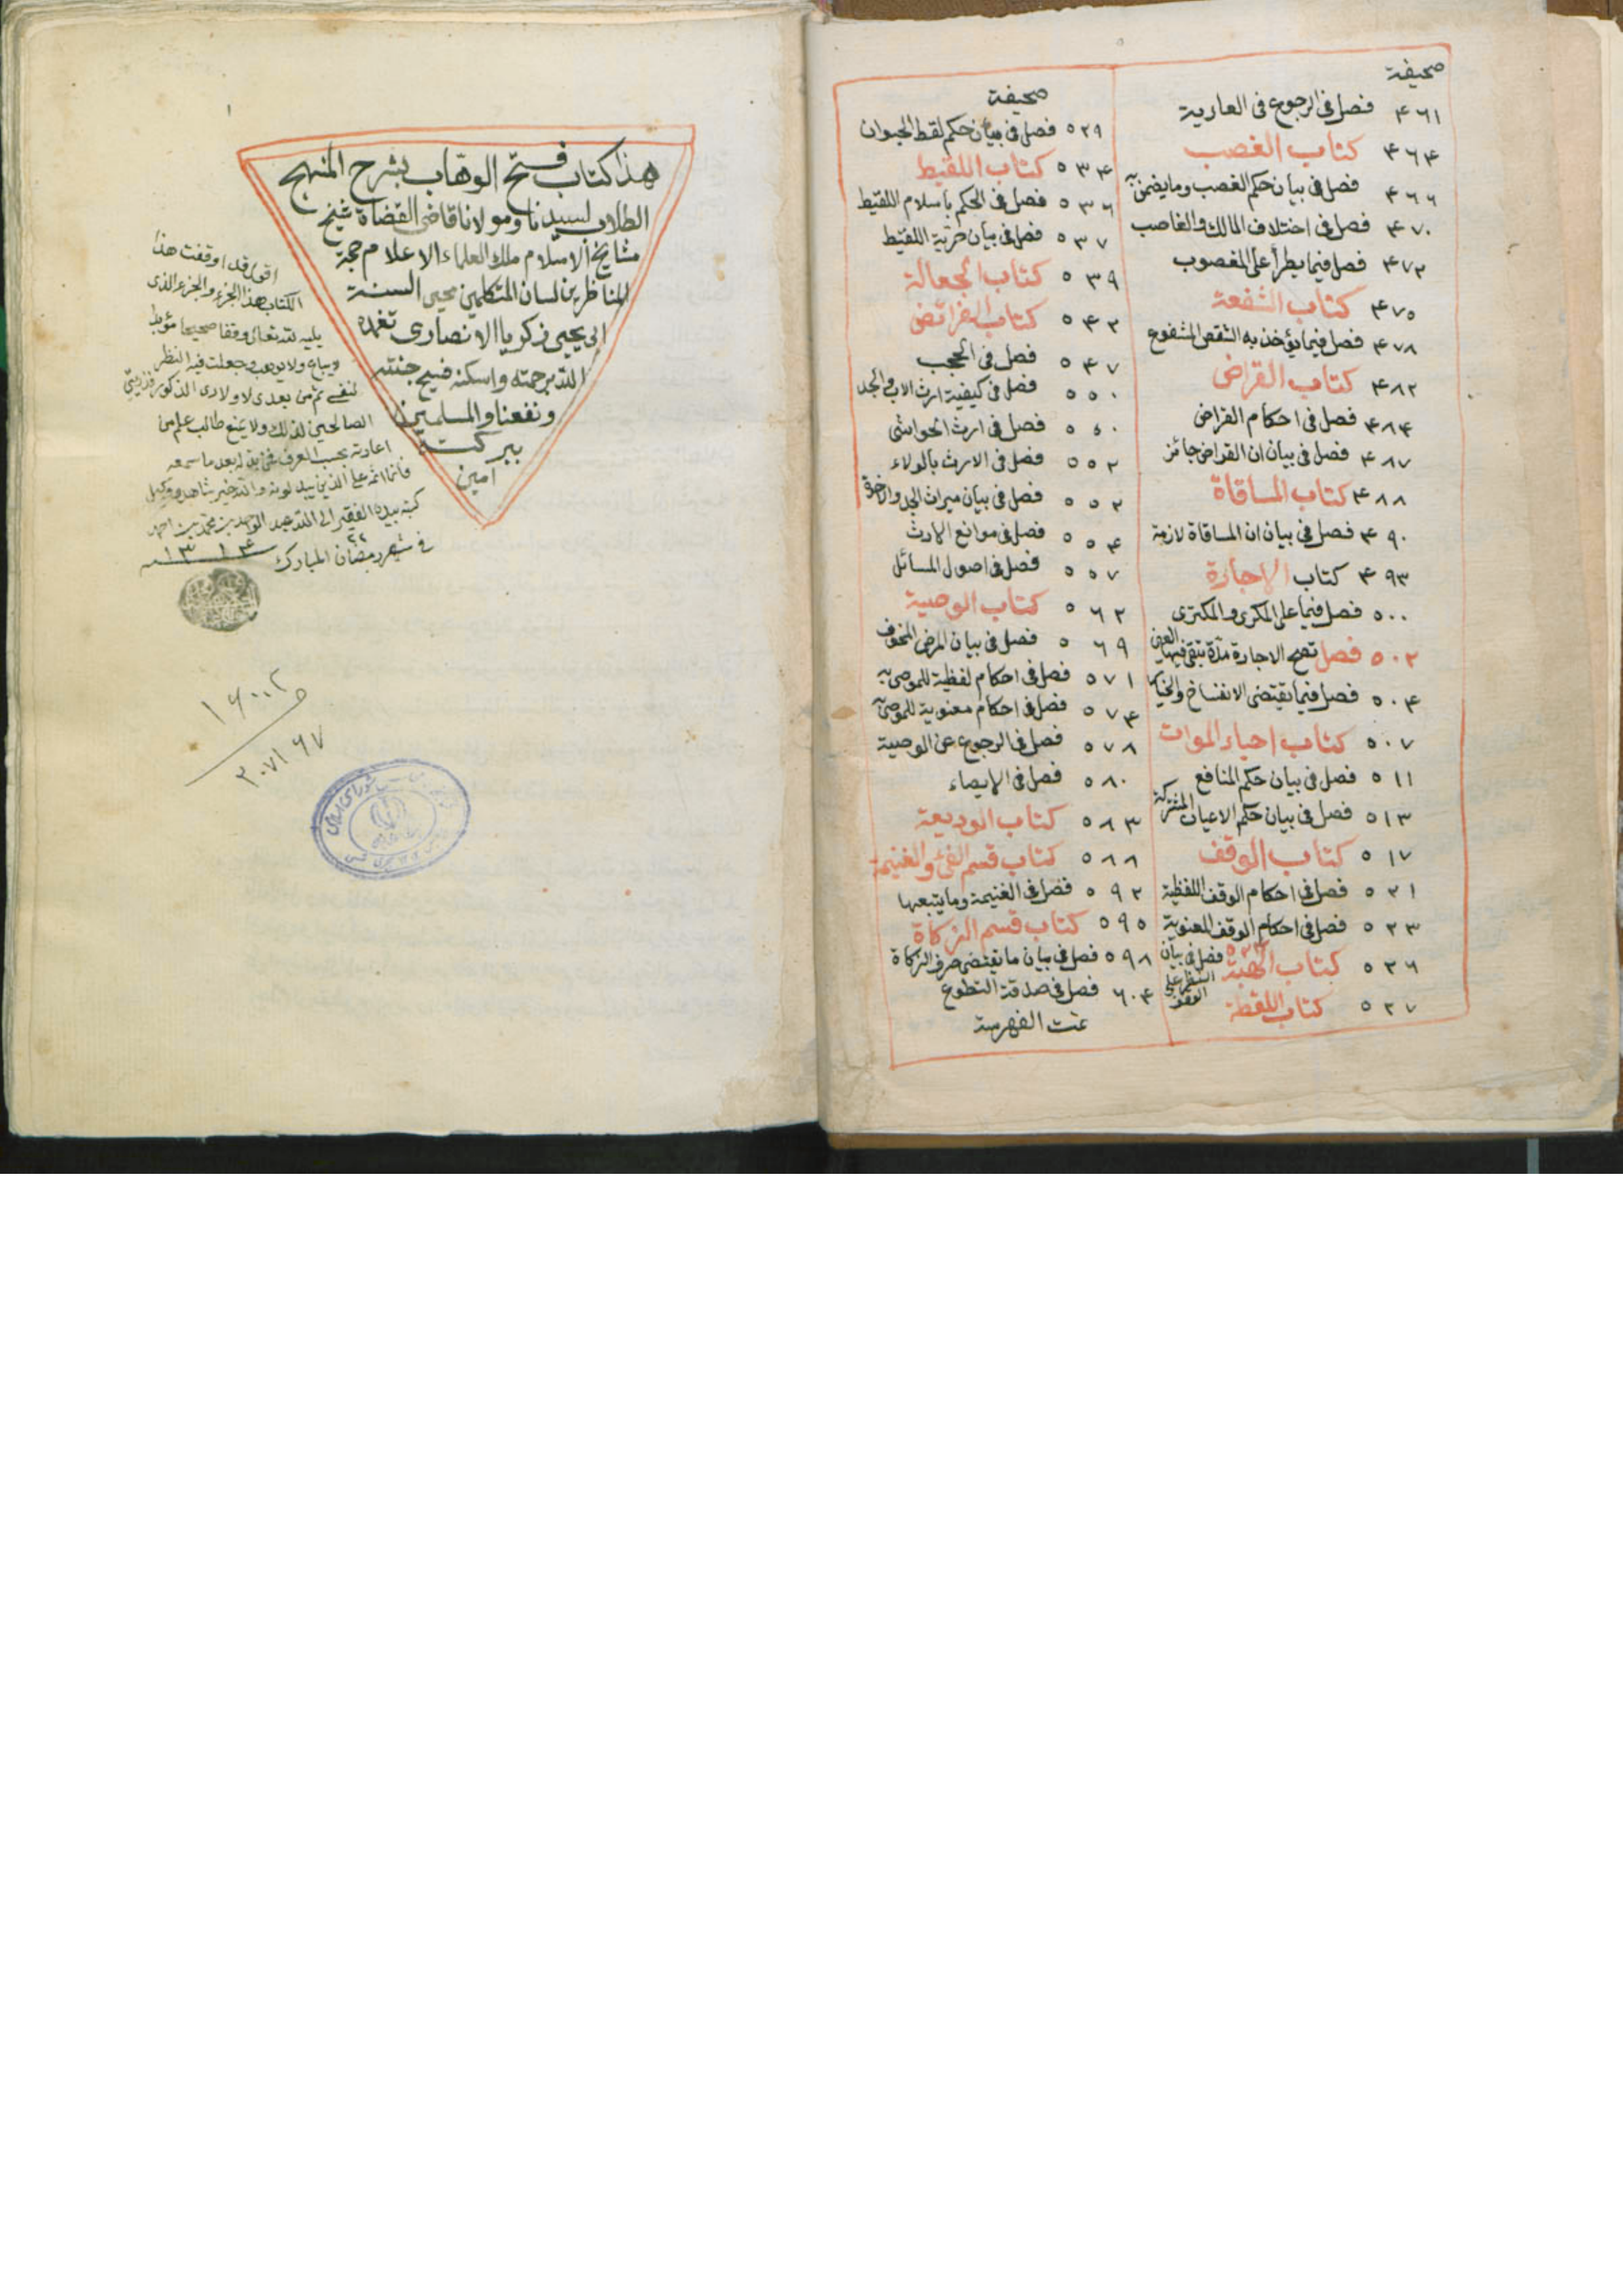 صحيفة
٤٦١ فصل في الرجوع في العارية
٤٦٤ كتاب الغصب
٤٦٦ فصل في بيان حكم الغصب وما يضمن به
٤٧٠ فصل في اختلاف المالك والغاصب
٤٧٢ فصل فيما يطرأ على المغصوب
٤٧٥ كتاب الشفعة
٤٧٨ فصل فيما يؤخذ به الشقص المشفوع
٤٨٢ كتاب القراض
٤٨٤ فصل في احكام القراض
٤٨٧ فصل في بيان ان القراض جائز
٤٨٨ كتاب المساقاة
٤٩٠ فصل في بيان ان المساقاة لازمة
٤٩٣ كتاب الاجارة
٥٠٠ فصل فيما على المكرى والمكترى
٥٠٢ فصل تصح الاجارة مدة تبقى فيها العين
٥٠٤ فصل فيما يقتضى الانفساخ والخيار
٥٠٧ كتاب احياء الموات
٥١١ فصل في بيان حكم المنافع المشتركة
٥١٣ فصل في بيان حكم الاعيان
٥١٧ كتاب الوقف
٥٢١ فصل في احكام الوقف اللفظية
٥٢٣ فصل في احكام الوقف المعنوية
فصل في بيان النظر على الوقف
٥٢٦ كتاب الهبة
٥٢٧ كتاب اللقطة
صحيفة
٥٢٩ فصل في بيان حكم لقط الحيوان
٥٣٤ كتاب اللقيط
٥٣٦ فصل في الحكم باسلام اللقيط
٥٣٧ فصل في بيان حرية اللقيط
٥٣٩ كتاب الجعالة
٥٤٢ كتاب الفرائض
٥٤٧ فصل في الحجب
٥٥٠ فصل في كيفية ارث الاب والجد
فصل في ارث الحواشى
٥٥٢ فصل في الارث بالولاء
٥٥٢ فصل في بيان ميراث الجد والاخوة
٥٥٤ فصل في موانع الارث
٥٥٧ فصل في اصول المسائل
٥٦٢ كتاب الوصية
٥٦٩ فصل في بيان المرض المخوف
٥٧١ فصل في احكام لفظية للموصى به
٥٧٤ فصل في احكام معنوية للموصى به
٥٧٨ فصل في الرجوع عن الوصية
٥٨٠ فصل في الايصاء
٥٨٣ كتاب الوديعة
٥٨٨ كتاب قسم الفئ والغنيمة
٥٩٢ فصل في الغنيمة وما يتبعها
٥٩٥ كتاب قسم الزكاة
٥٩٨ فصل في بيان ما يقتضى صرف الزكاة
٦٠٤ فصل في صدقة التطوع
تمت الفهرسة
١
هذا كتاب فتح الوهاب بشرح المنهج
الطلاب لسيدنا ومولانا قاضى القضاة شيخ
مشايخ الاسلام ملك العلماء الاعلام حجة
المناظرين لسان المتكلمين محيى السنة
ابى يحيى زكريا الانصارى تغمده
الله برحمته واسكنه فسيح جنته
ونفعنا والمسلمين
ببركته
امين
اقول قد اوقفت هذا
الكتاب هذا الجزء والجزء الذى
يليه لله تعالى وقفا صحيحا مؤبدا
ويباع ولا يوهب وجعلت فيه النظر
لنفسى ثم من بعدى لاولادى الذكور
الصالحين لذلك ولا يمنع طالب علم من
اعارته بحسب العرف فمن بدله بعد ما سمعه
فانما اثمه على الذين يبدلونه والله خير شاهد ووكيل
كتبه بيده الفقير الى الله عبد محمد بن احمد
في شهر رمضان المبارك ٢٢ ١٣١٤
١٦٠٠٢
٢٠٧١٦٧